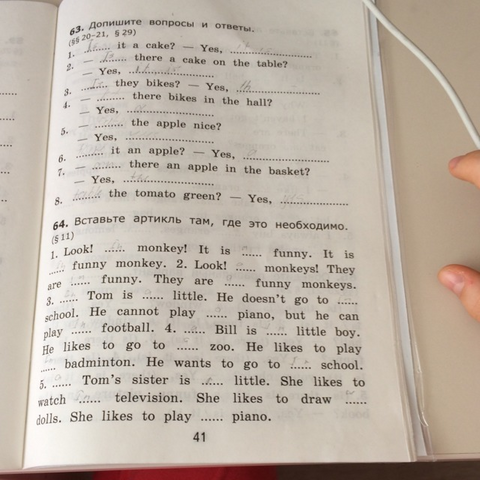 63. Допишите вопросы и ответы.
(§§ 20–21, § 29)
1. ........ it a cake? — Yes, ....................
2. — ........ there a cake on the table?
— Yes, ....................
3. ........ they bikes? — Yes, ....................
4. — ........ there bikes in the hall?
— Yes, ....................
5. — ........ the apple nice?
— Yes, ....................
6. ........ it an apple? — Yes, ....................
7. — ........ there an apple in the basket?
— Yes, ....................
8. ........ the tomato green? — Yes, ....................
64. Вставьте артикль там, где это необходимо.
(§ 11)
1. Look! ...... monkey! It is ...... funny. It is
...... funny monkey. 2. Look! ...... monkeys! They
are ...... funny. They are ...... funny monkeys.
3. ...... Tom is ...... little. He doesn't go to ......
school. He cannot play ...... piano, but he can
play ...... football. 4. ...... Bill is ...... little boy.
He likes to go to ...... zoo. He likes to play
...... badminton. He wants to go to ...... school.
5. ...... Tom's sister is ...... little. She likes to
watch ...... television. She likes to draw ......
dolls. She likes to play ...... piano.
41